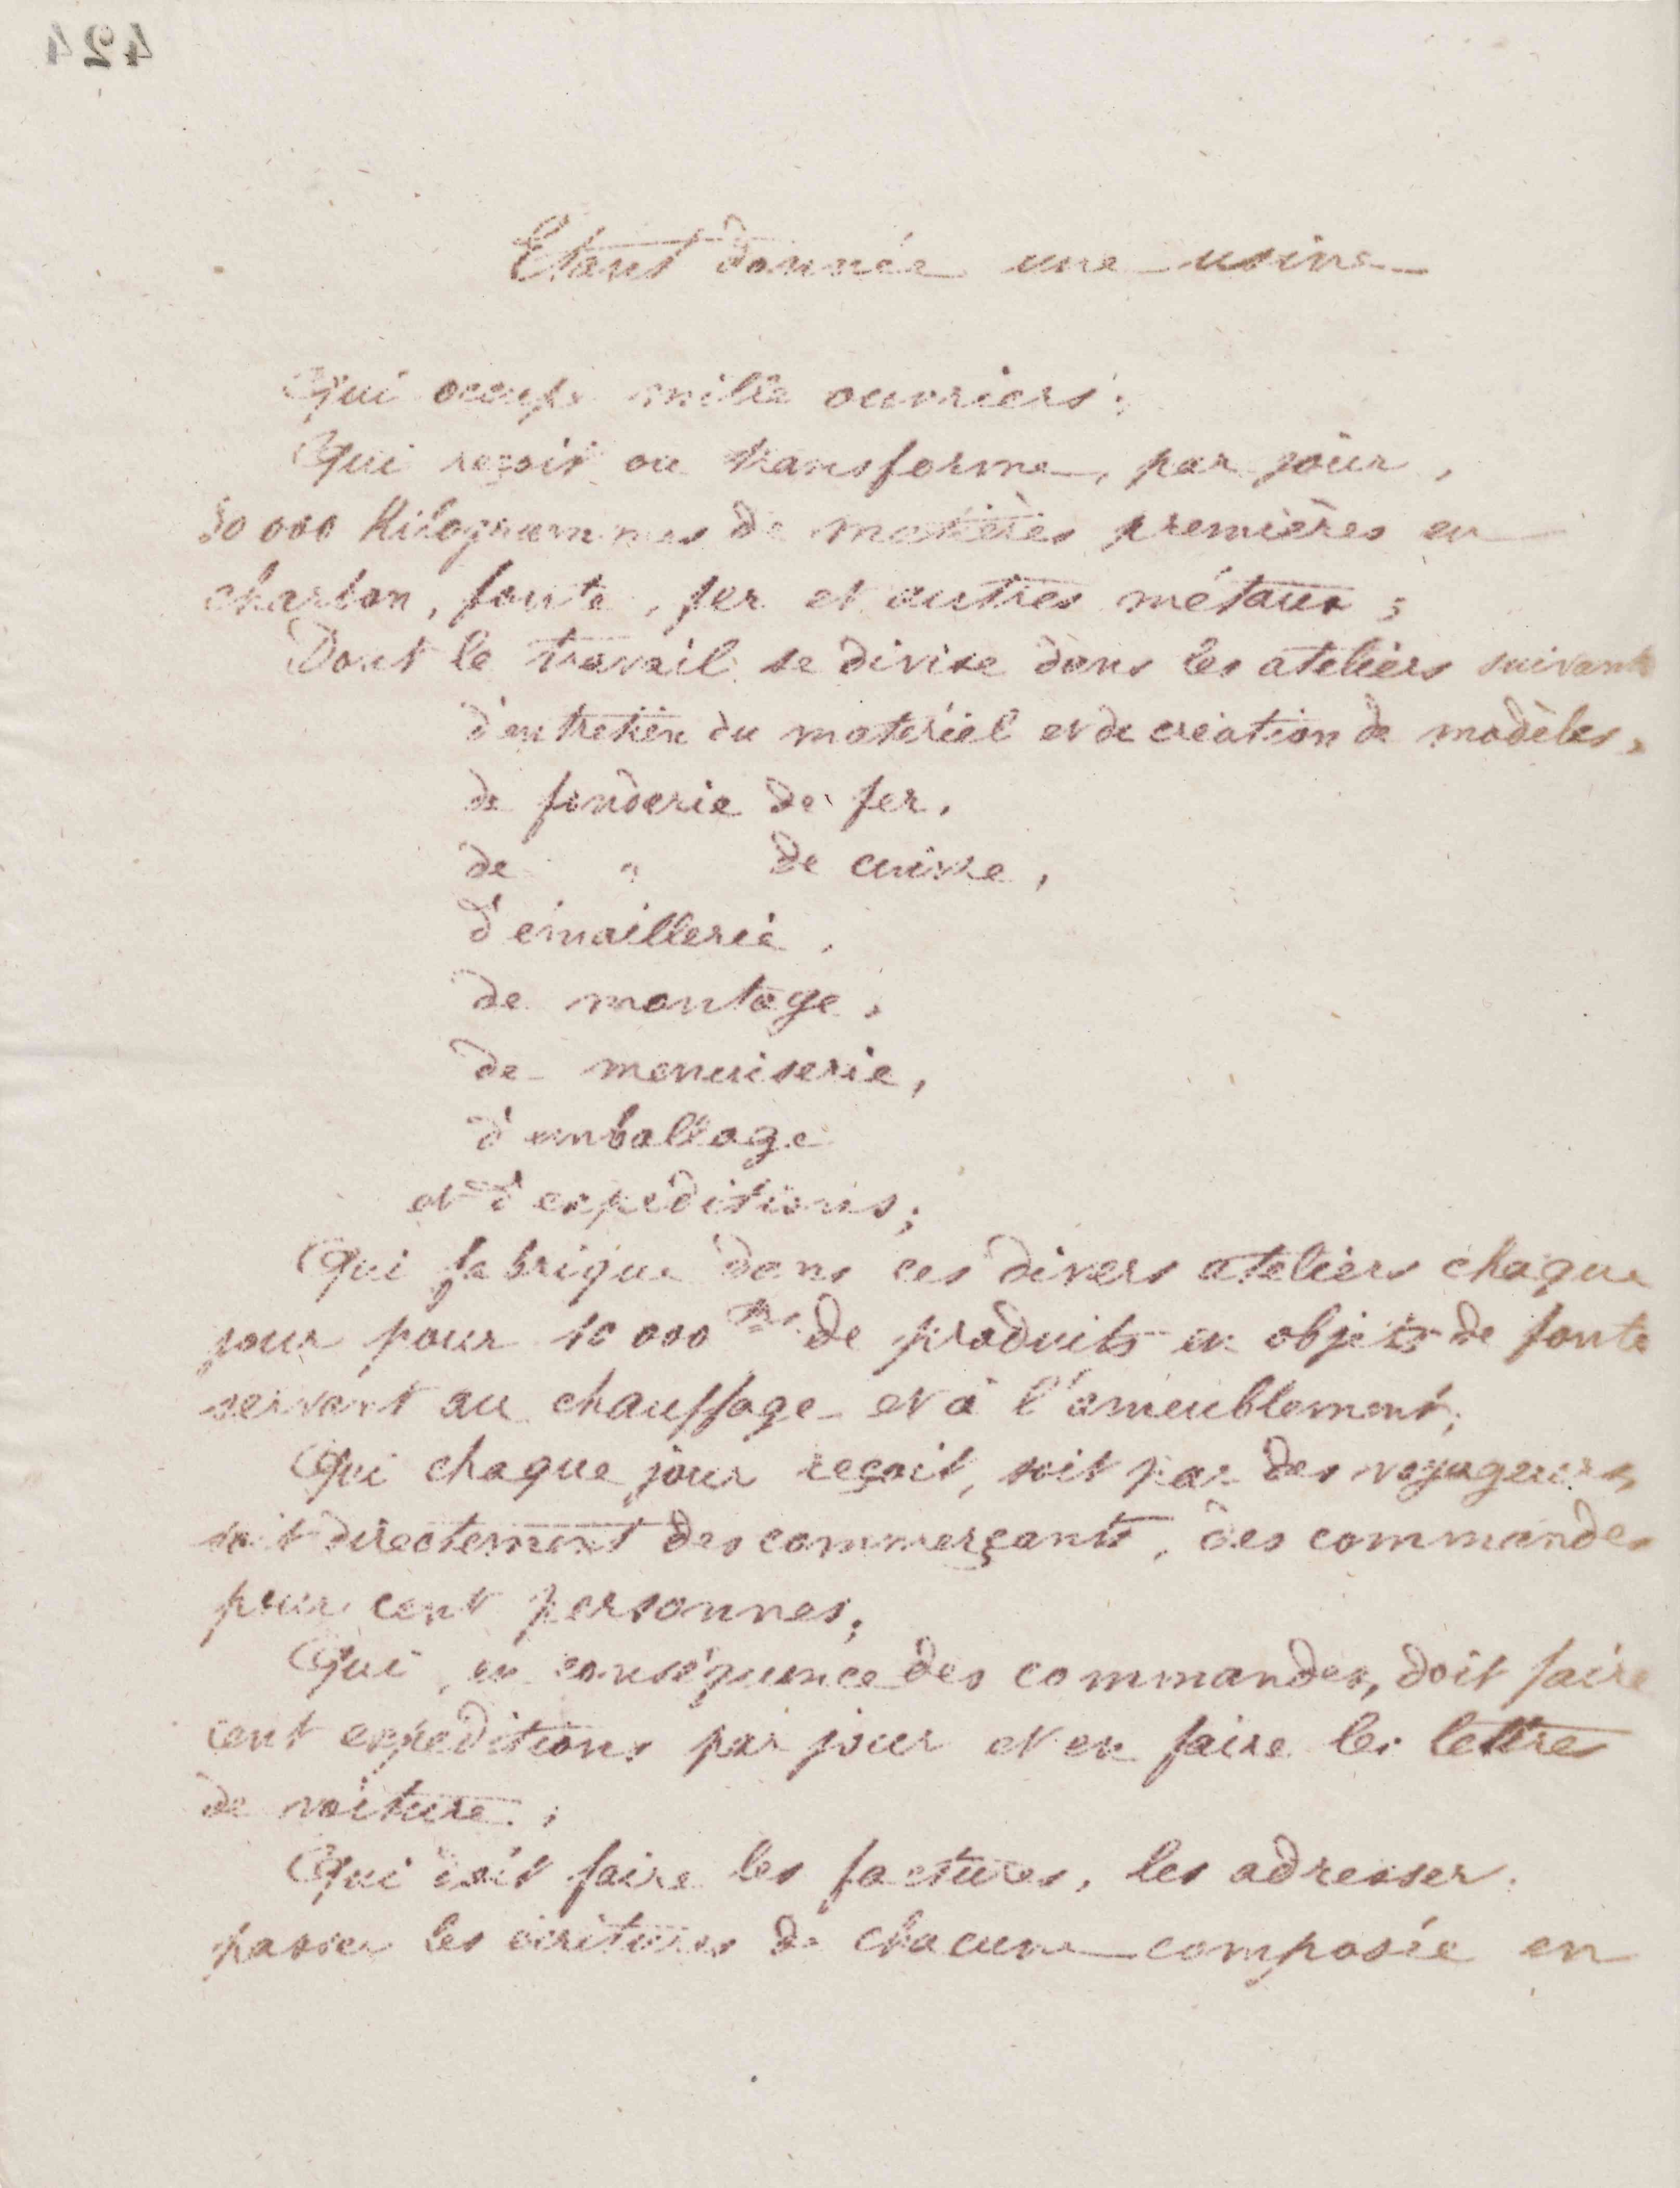 424
Etant donnée une usine
Qui occupe mille ouvriers;
Qui reçoit ou transforme, par jour,
30 000 Kilogrammes de matières premières en
charbon, fonte, fer et autres métaux;
Dont le travail se divise dans les ateliers suivants
d'entretien du matériel et de création de modèles,
de fonderie de fer,
de " de cuivre,
d'émaillerie,
de montage,
de menuiserie,
d'emballage
et d'expéditions;
Qui fabrique dans ces divers ateliers chaque
jour pour 10 000 frs de produits en objets de fonte
servant au chauffage et à l'ameublement;
Qui chaque jour reçoit, soit par des voyageurs,
soit directement des commerçants, des commandes
pour cent personnes;
Qui, en conséquence des commandes, doit faire
cent expéditions par jour et en faire les lettres
de voiture;
Qui doit faire les factures, les adresser,
passer les écritures de chacune composée en